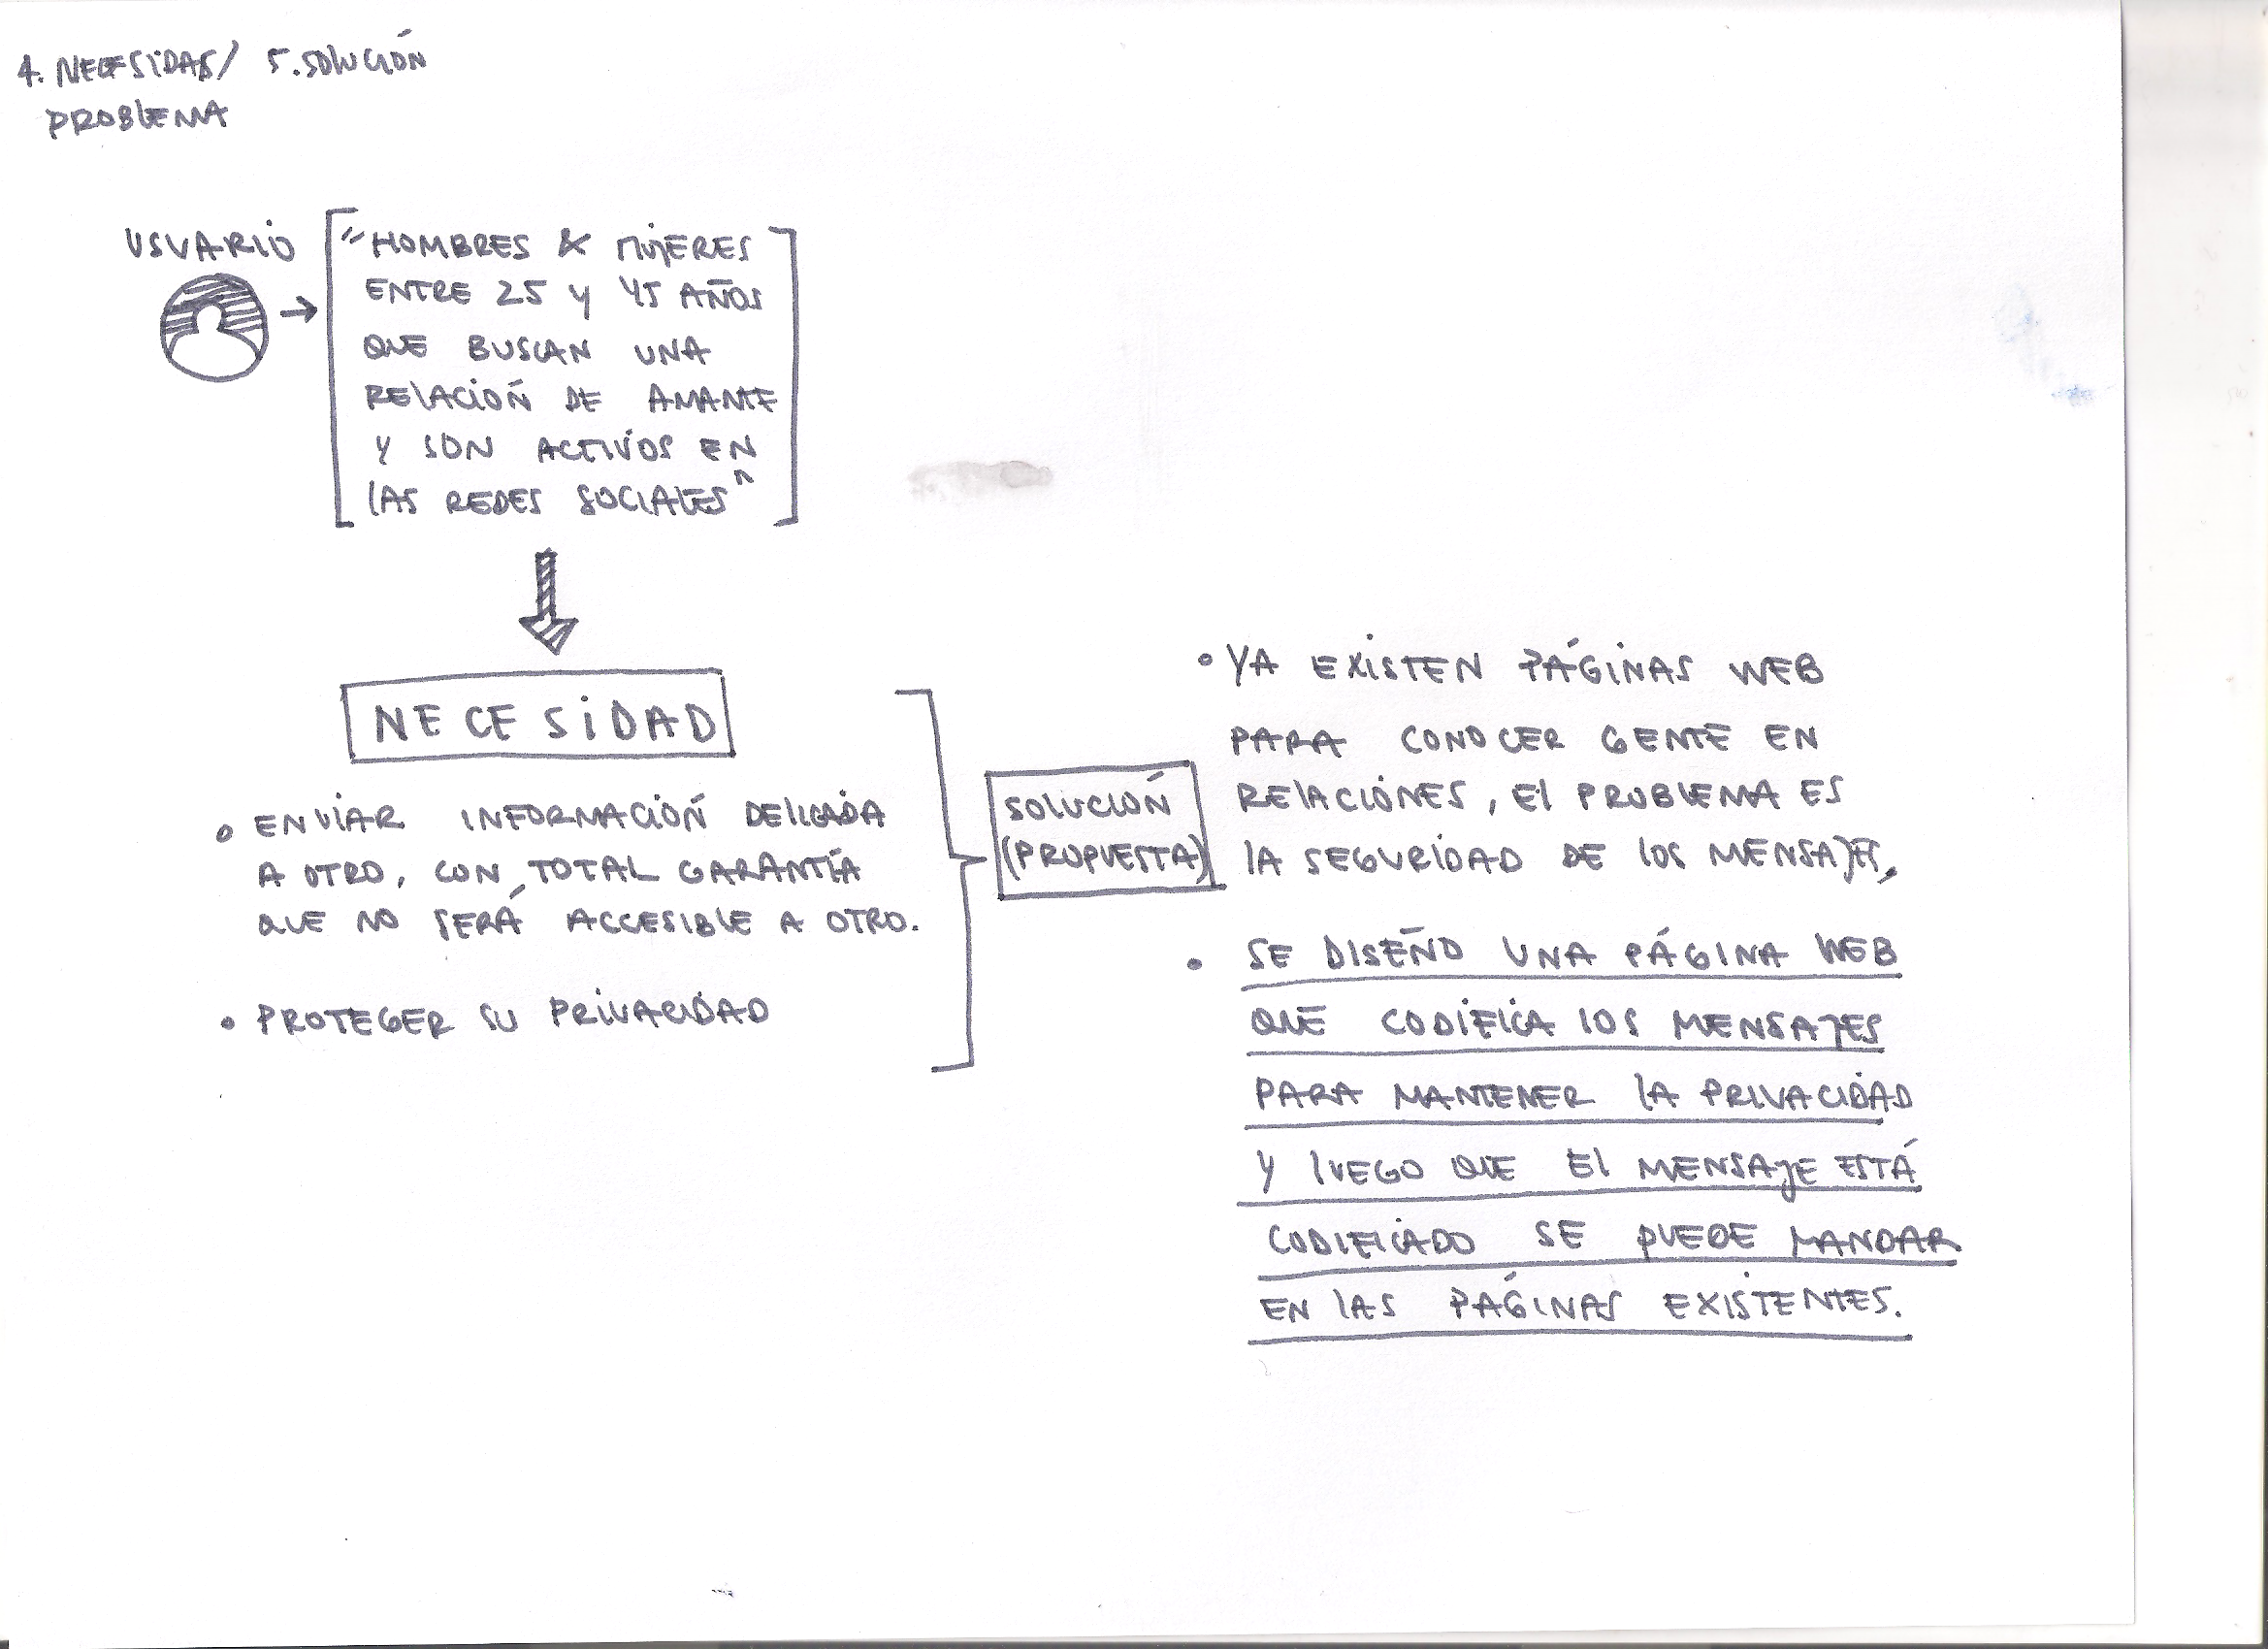 4. NECESIDAD/ 5. SOLUCIÓN
PROBLEMA
USUARIO
"HOMBRES & MUJERES
ENTRE 25 Y 45 AÑOS
QUE BUSCAN UNA
RELACIÓN DE AMANTE
Y SON ACTIVOS EN
LAS REDES SOCIALES"
NECESIDAD
• ENVIAR INFORMACIÓN DELICADA
A OTRO, CON TOTAL GARANTÍA
QUE NO SERÁ ACCESIBLE A OTRO.
• PROTEGER SU PRIVACIDAD
SOLUCIÓN
(PROPUESTA)
• YA EXISTEN PÁGINAS WEB
PARA CONOCER GENTE EN
RELACIONES, EL PROBLEMA ES
LA SEGURIDAD DE LOS MENSAJES,
• SE DISEÑO UNA PÁGINA WEB
QUE CODIFICA LOS MENSAJES
PARA MANTENER LA PRIVACIDAD
Y LUEGO QUE EL MENSAJE ESTÁ
CODIFICADO SE PUEDE MANDAR
EN LAS PÁGINAS EXISTENTES.